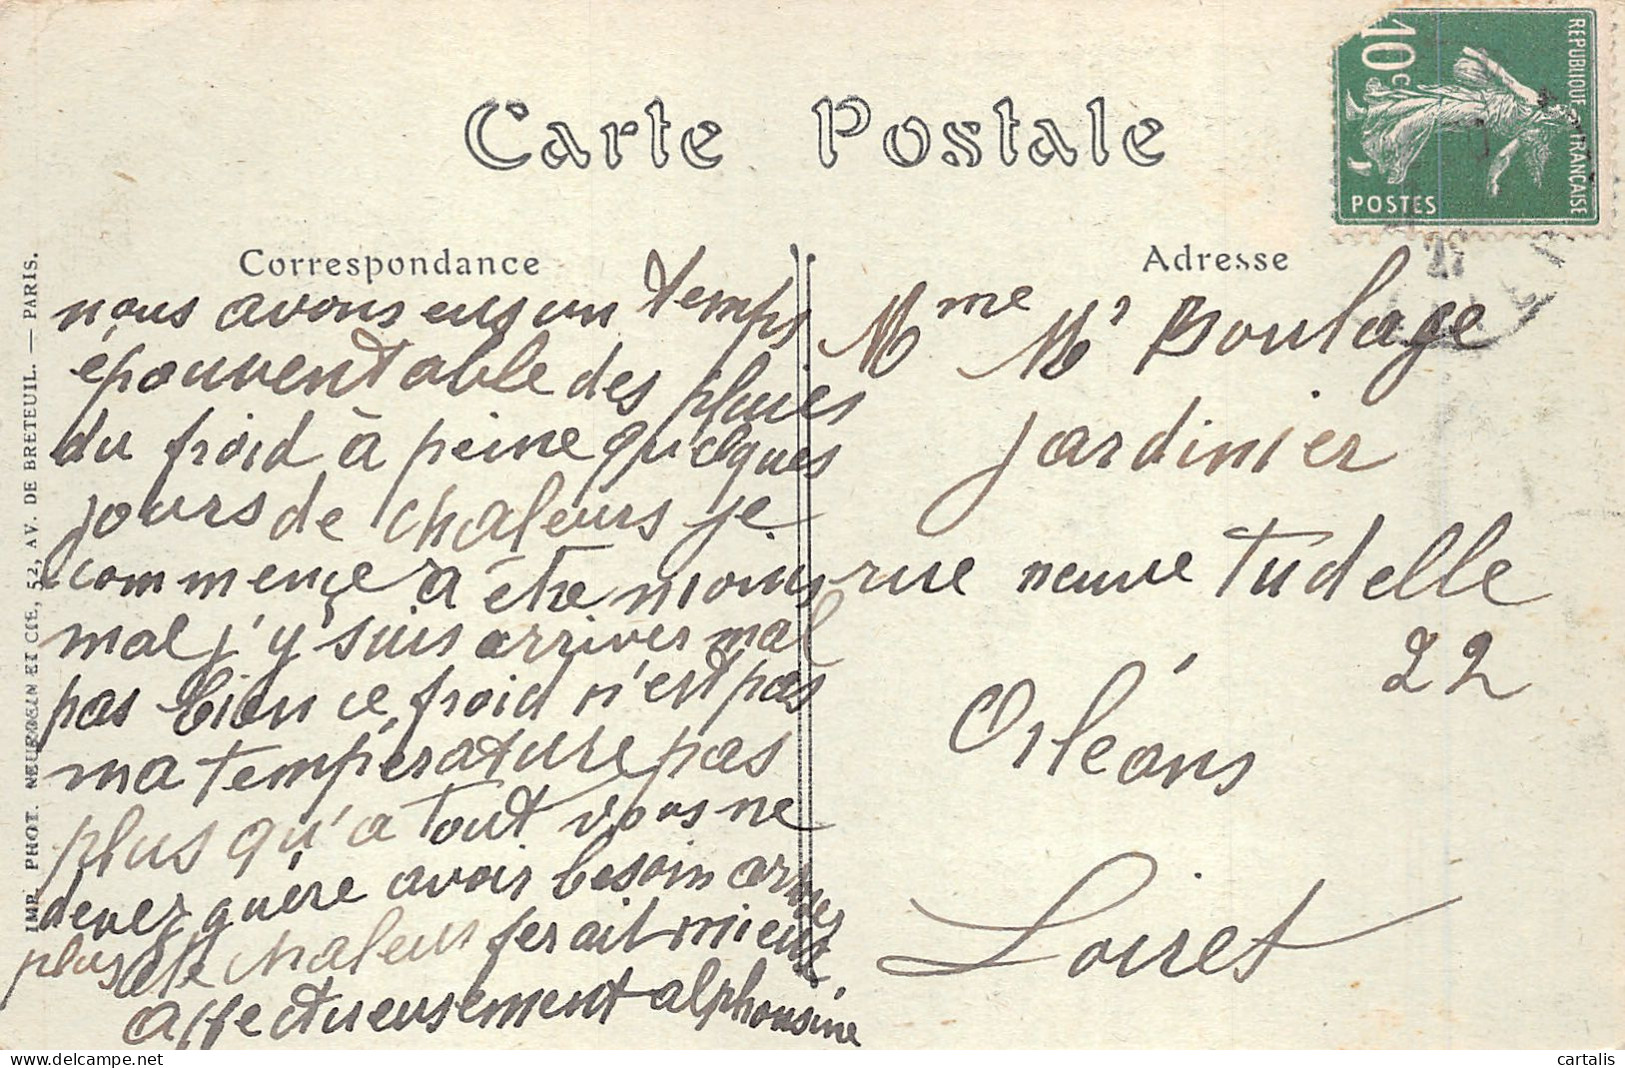 Carte Postale
REPUBLIQUE FRANÇAISE
10c
POSTES
Correspondance
Adresse
nous avons eus un temps
épouventable des pluies
du froid à peine quelques
jours de chaleurs je
commence a être moins
mal j'y suis arriver mal
pas bien ce froid n'est pas
ma température pas
plus qu'a tout vous ne
devez guère avoir besoin
plus de chaleur ferait mieux
affectueusement alphonsine
Mme Mr Boulage
jardinier
rue neuve Tudelle
22
Orléans
Loiret
IMP. PHOT. NEURDEIN ET CIE, 52, AV. DE BRETEUIL. — PARIS.
delcampe.net
cartalis